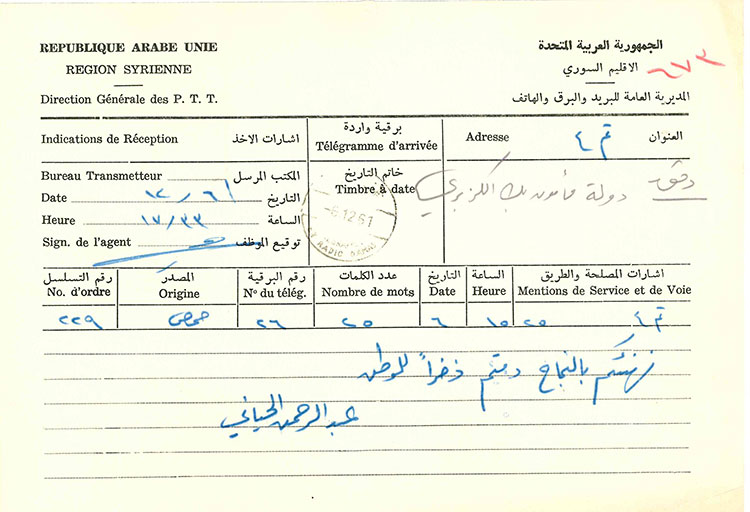 REPUBLIQUE ARABE UNIE
REGION SYRIENNE
Direction Générale des P. T. T.
الجمهورية العربية المتحدة
الاقليم السوري
٦٧٣
المديرية العامة للبريد والبرق والهاتف
Indications de Réception اشارات الاخذ
برقية واردة
Télégramme d'arrivée
العنوان
Adresse
Bureau Transmetteur المكتب المرسل
Date ٦/١٢ التاريخ
Heure ١٧/٣٣ الساعة
Sign. de l'agent توقيع الموظف
خاتم التاريخ
Timbre à date
-6.12.61
دمشق
دولة مأمون بك الكزبري
رقم التسلسل المصدر رقم البرقية عدد الكلمات التاريخ الساعة اشارات المصلحة والطريق
No. d'ordre Origine Nº du télég. Nombre de mots Date Heure Mentions de Service et de Voie
٢٢٩ حمص ٢٦ ٢٥ ٦ ١٥ ٢٥
نهنئكم بالنجاح دمتم ذخراً للوطن
عبد الرحمن